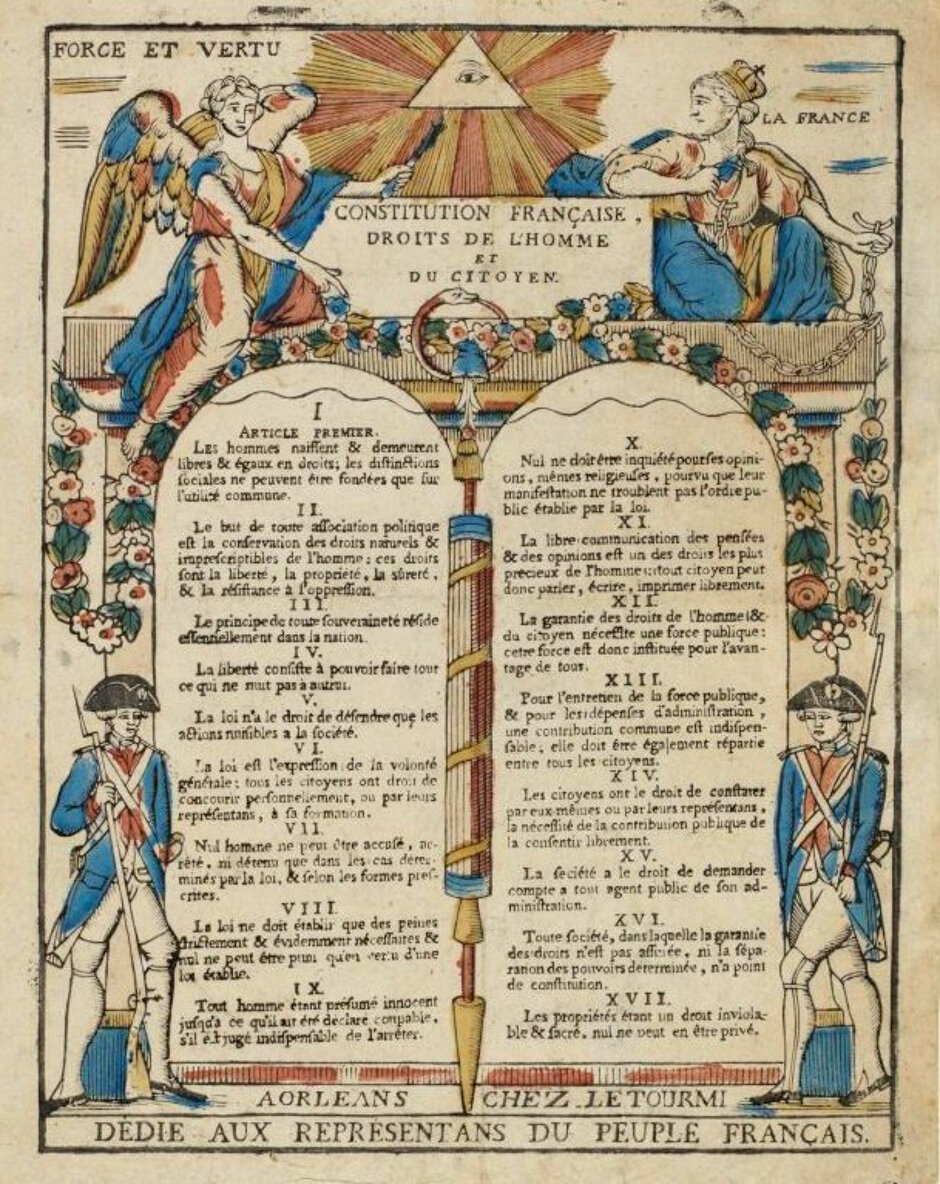 FORCE ET VERTU
LA FRANCE
CONSTITUTION FRANÇAISE,
DROITS DE L'HOMME
ET
DU CITOYEN.
I
ARTICLE PREMIER.
Les hommes naiſſent & demeurent
libres & égaux en droits; les diſtinctions
ſociales ne peuvent être fondées que ſur
l'utilité commune.
II.
Le but de toute aſſociation politique
eſt la conſervation des droits naturels &
impreſcriptibles de l'homme: ces droits
ſont la liberté, la propriété, la sûreté,
& la réſiſtance à l'oppreſſion.
III.
Le principe de toute ſouveraineté réſide
eſſentiellement dans la nation.
IV.
La liberté conſiſte à pouvoir faire tout
ce qui ne nuit pas à autrui.
V.
La loi n'a le droit de défendre que les
actions nuiſibles a la ſociété.
VI.
La loi eſt l'expreſſion de la volonté
générale; tous les citoyens ont droit de
concourir perſonnellement, ou par leurs
repréſentans, à ſa formation.
VII.
Nul homme ne peut être accuſé, ar-
rêté, ni détenu que dans les cas déter-
minés par la loi, & ſelon les formes preſ-
crites.
VIII.
La loi ne doit établir que des peines
ſtrictement & évidemment néceſſaires &
nul ne peut être puni qu'en vertu d'une
loi établie.
IX.
Tout homme étant préſumé innocent
juſqu'a ce qu'il ait été déclaré coupable,
s'il eſt jugé indiſpenſable de l'arrêter.
X.
Nul ne doit être inquiété pour ſes opini-
ons, mêmes religieuſes, pourvu que leur
manifeſtation ne troublent pas l'ordre pu-
blic établie par la loi.
XI.
La libre communication des penſées
& des opinions eſt un des droits les plus
précieux de l'homme: tout citoyen peut
donc parler, écrire, imprimer librement.
XII.
La garantie des droits de l'homme &
du citoyen néceſſite une force publique:
cette force eſt donc inſtituée pour l'avan-
tage de tous.
XIII.
Pour l'entretien de la force publique,
& pour les dépenſes d'adminiſtration,
une contribution commune eſt indiſpen-
ſable; elle doit être également répartie
entre tous les citoyens.
XIV.
Les citoyens ont le droit de conſtater
par eux-mêmes ou par leurs repréſentans,
la néceſſité de la contribution publique de
la conſentir librement.
XV.
La ſociété a le droit de demander
compte a tout agent public de ſon ad-
miniſtration.
XVI.
Toute ſociété, dans laquelle la garantie
des droits n'eſt pas aſſurée, ni la ſépa-
ration des pouvoirs determinée, n'a point
de conſtitution.
XVII.
Les propriétés étant un droit inviola-
ble & ſacré, nul ne peut en être privé.
A ORLEANS CHEZ LETOURMI
DÉDIÉ AUX REPRÉSENTANS DU PEUPLE FRANÇAIS.